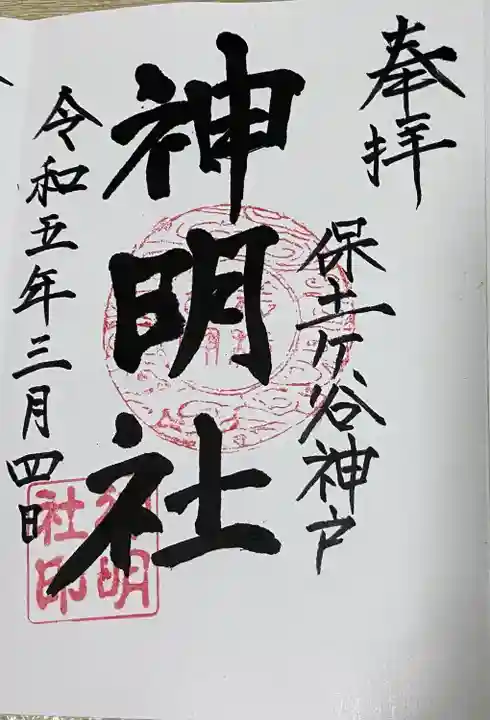 奉拝
保土ケ谷神戸
神明社
令和五年三月四日
神明
社印